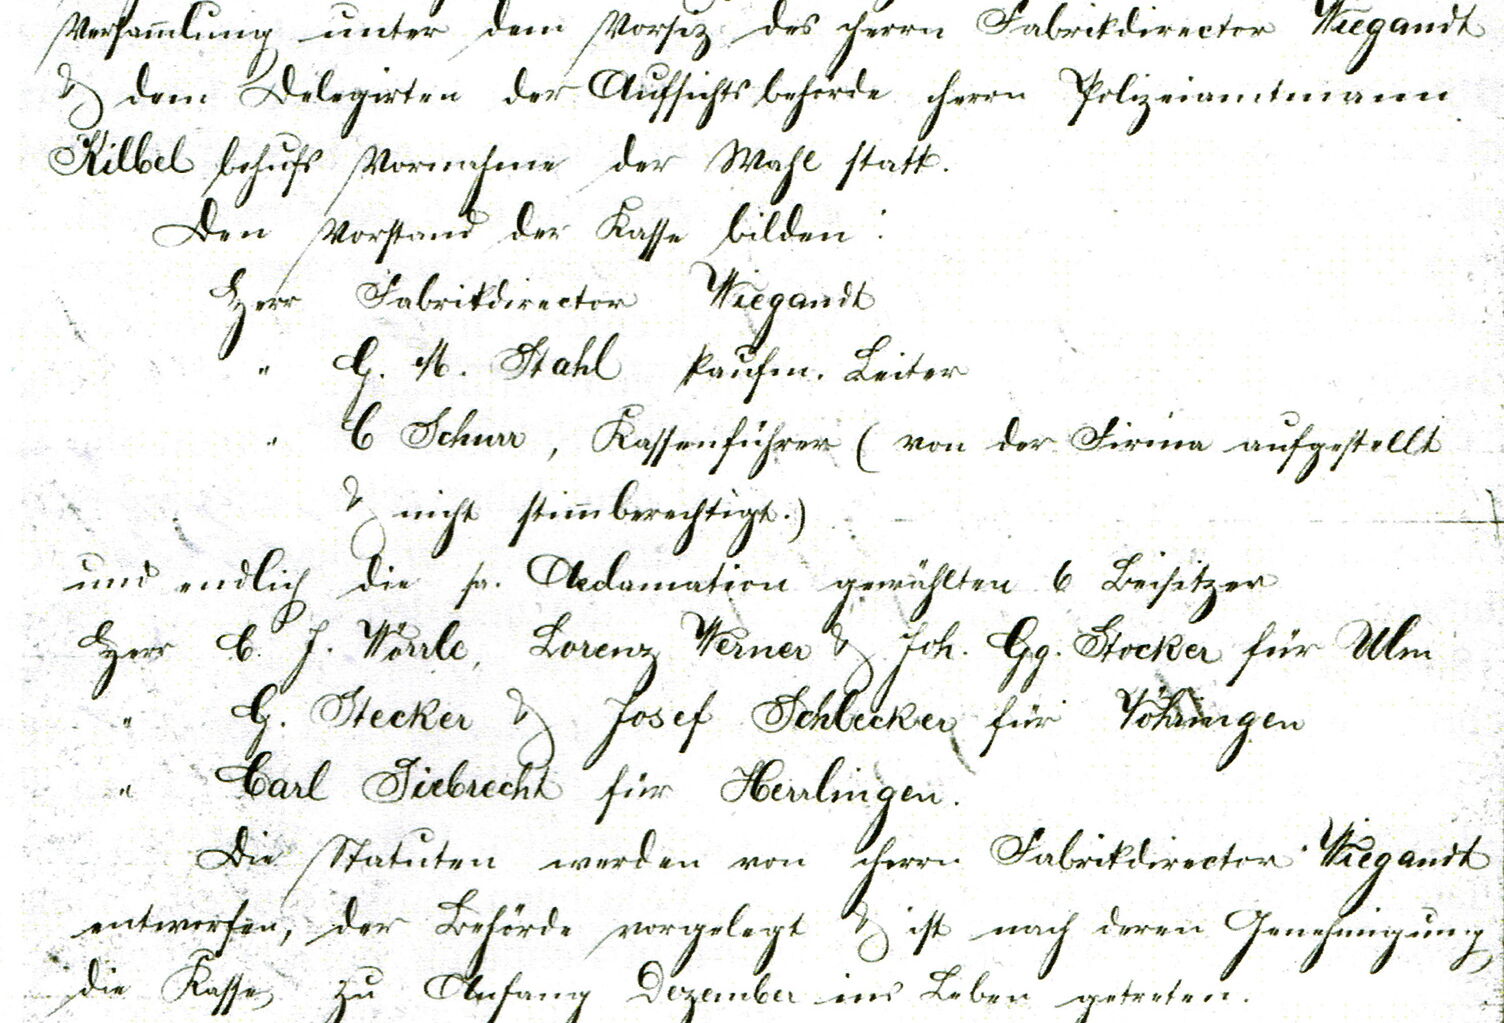 Versam̄lung unter dem Vorsiz des Herrn Fabrikdirector Wiegandt
& dem Delegirten der Aufsichtsbehörde Herrn Polizeiamtmann
Kilbel behufs Vornahme der Wahl statt.
Den Vorstand der Kasse bilden:
Herr Fabrikdirector Wiegandt
" G. M. Stahl kaufm. Leiter
" C Schurr, Kassenführer (von der Firma aufgestellt
& nicht stim̄berechtigt.)
und endlich die pa. Acclamation gewählten 6 Beisitzer
Herr C. J. Wörrle, Lorenz Werner & Joh. Gg. Stocker für Ulm
" G. Stecker & Josef Schlecker für Vöhringen
" Carl Siebrecht für Herrlingen.
Die Statuten werden von Herrn Fabrikdirector Wiegandt
entworfen, der Behörde vorgelegt & ist nach deren Genehmigung
die Kasse zu Anfang Dezember ins Leben getreten.